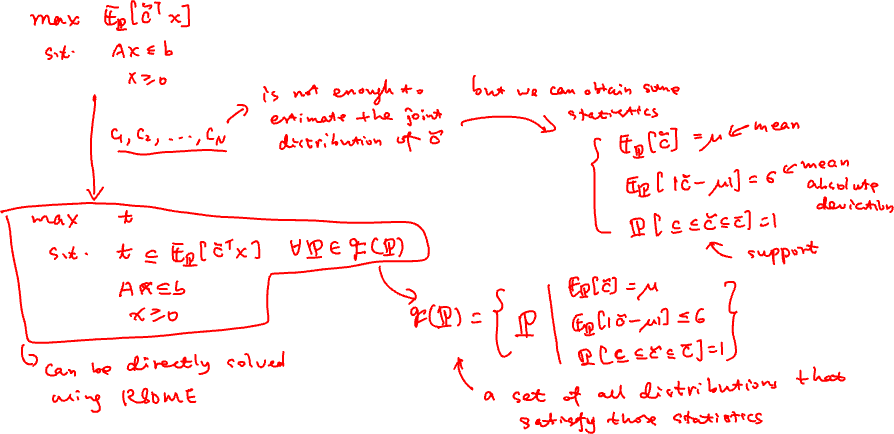 max 𝔼_ℙ[c̃ᵀx]
s.t. Ax ≤ b
x ≥ 0
c₁, c₂, ..., c_N
is not enough to
estimate the joint
distribution of c̃
but we can obtain some
statistics
𝔼_ℙ[c̃] = μ ← mean
𝔼_ℙ[|c̃-μ|] = σ ← mean
absolute
deviation
ℙ[c̲ ≤ c̃ ≤ c̄] = 1
support
max t
s.t. t ≤ 𝔼_ℙ[c̃ᵀx] ∀ℙ ∈ 𝓕(ℙ)
Ax ≤ b
x ≥ 0
can be directly solved
using RSOME
𝓕(ℙ) = { ℙ | 𝔼_ℙ[c̃] = μ
𝔼_ℙ[|c̃-μ|] ≤ σ
ℙ[c̲ ≤ c̃ ≤ c̄] = 1 }
a set of all distributions that
satisfy those statistics